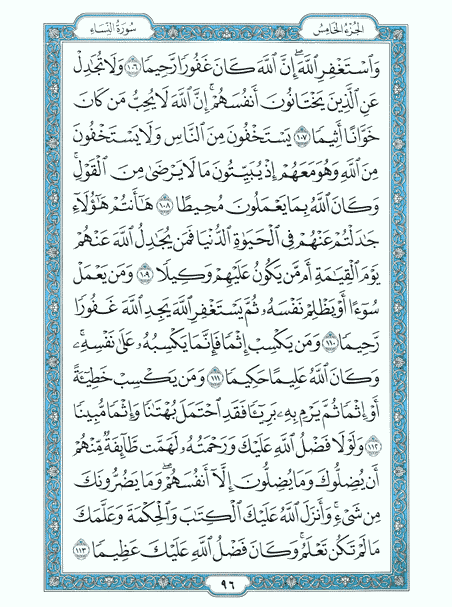 سُورَةُ النِّسَاءِ الجُزْءُ الخَامِسُ
وَٱسْتَغْفِرِ ٱللَّهَ ۖ إِنَّ ٱللَّهَ كَانَ غَفُورًا رَّحِيمًا ١٠٦ وَلَا تُجَٰدِلْ
عَنِ ٱلَّذِينَ يَخْتَانُونَ أَنفُسَهُمْ ۚ إِنَّ ٱللَّهَ لَا يُحِبُّ مَن كَانَ
خَوَّانًا أَثِيمًا ١٠٧ يَسْتَخْفُونَ مِنَ ٱلنَّاسِ وَلَا يَسْتَخْفُونَ
مِنَ ٱللَّهِ وَهُوَ مَعَهُمْ إِذْ يُبَيِّتُونَ مَا لَا يَرْضَىٰ مِنَ ٱلْقَوْلِ ۚ
وَكَانَ ٱللَّهُ بِمَا يَعْمَلُونَ مُحِيطًا ١٠٨ هَٰٓأَنتُمْ هَٰٓؤُلَآءِ
جَٰدَلْتُمْ عَنْهُمْ فِى ٱلْحَيَوٰةِ ٱلدُّنْيَا فَمَن يُجَٰدِلُ ٱللَّهَ عَنْهُمْ
يَوْمَ ٱلْقِيَٰمَةِ أَم مَّن يَكُونُ عَلَيْهِمْ وَكِيلًا ١٠٩ وَمَن يَعْمَلْ
سُوٓءًا أَوْ يَظْلِمْ نَفْسَهُۥ ثُمَّ يَسْتَغْفِرِ ٱللَّهَ يَجِدِ ٱللَّهَ غَفُورًا
رَّحِيمًا ١١٠ وَمَن يَكْسِبْ إِثْمًا فَإِنَّمَا يَكْسِبُهُۥ عَلَىٰ نَفْسِهِۦ ۚ
وَكَانَ ٱللَّهُ عَلِيمًا حَكِيمًا ١١١ وَمَن يَكْسِبْ خَطِيٓـَٔةً
أَوْ إِثْمًا ثُمَّ يَرْمِ بِهِۦ بَرِيٓـًٔا فَقَدِ ٱحْتَمَلَ بُهْتَٰنًا وَإِثْمًا مُّبِينًا
١١٢ وَلَوْلَا فَضْلُ ٱللَّهِ عَلَيْكَ وَرَحْمَتُهُۥ لَهَمَّت طَّآئِفَةٌ مِّنْهُمْ
أَن يُضِلُّوكَ وَمَا يُضِلُّونَ إِلَّآ أَنفُسَهُمْ ۖ وَمَا يَضُرُّونَكَ
مِن شَىْءٍ ۚ وَأَنزَلَ ٱللَّهُ عَلَيْكَ ٱلْكِتَٰبَ وَٱلْحِكْمَةَ وَعَلَّمَكَ
مَا لَمْ تَكُن تَعْلَمُ ۚ وَكَانَ فَضْلُ ٱللَّهِ عَلَيْكَ عَظِيمًا ١١٣
٩٦